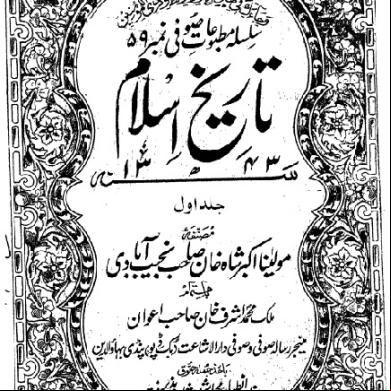 سلسلہ مطبوعات صوفی نمبر ۵۹
تاریخ اسلام
۱۳۴۳ھ
جلد اول
مصنفہ
مولینا اکبر شاہ خان صاحب نجیب آبادی
باہتمام
ملک محمد اشرف خان صاحب اعوان
منیجر رسالہ صوفی و صوفی دارالاشاعت پنڈی بہاؤالدین